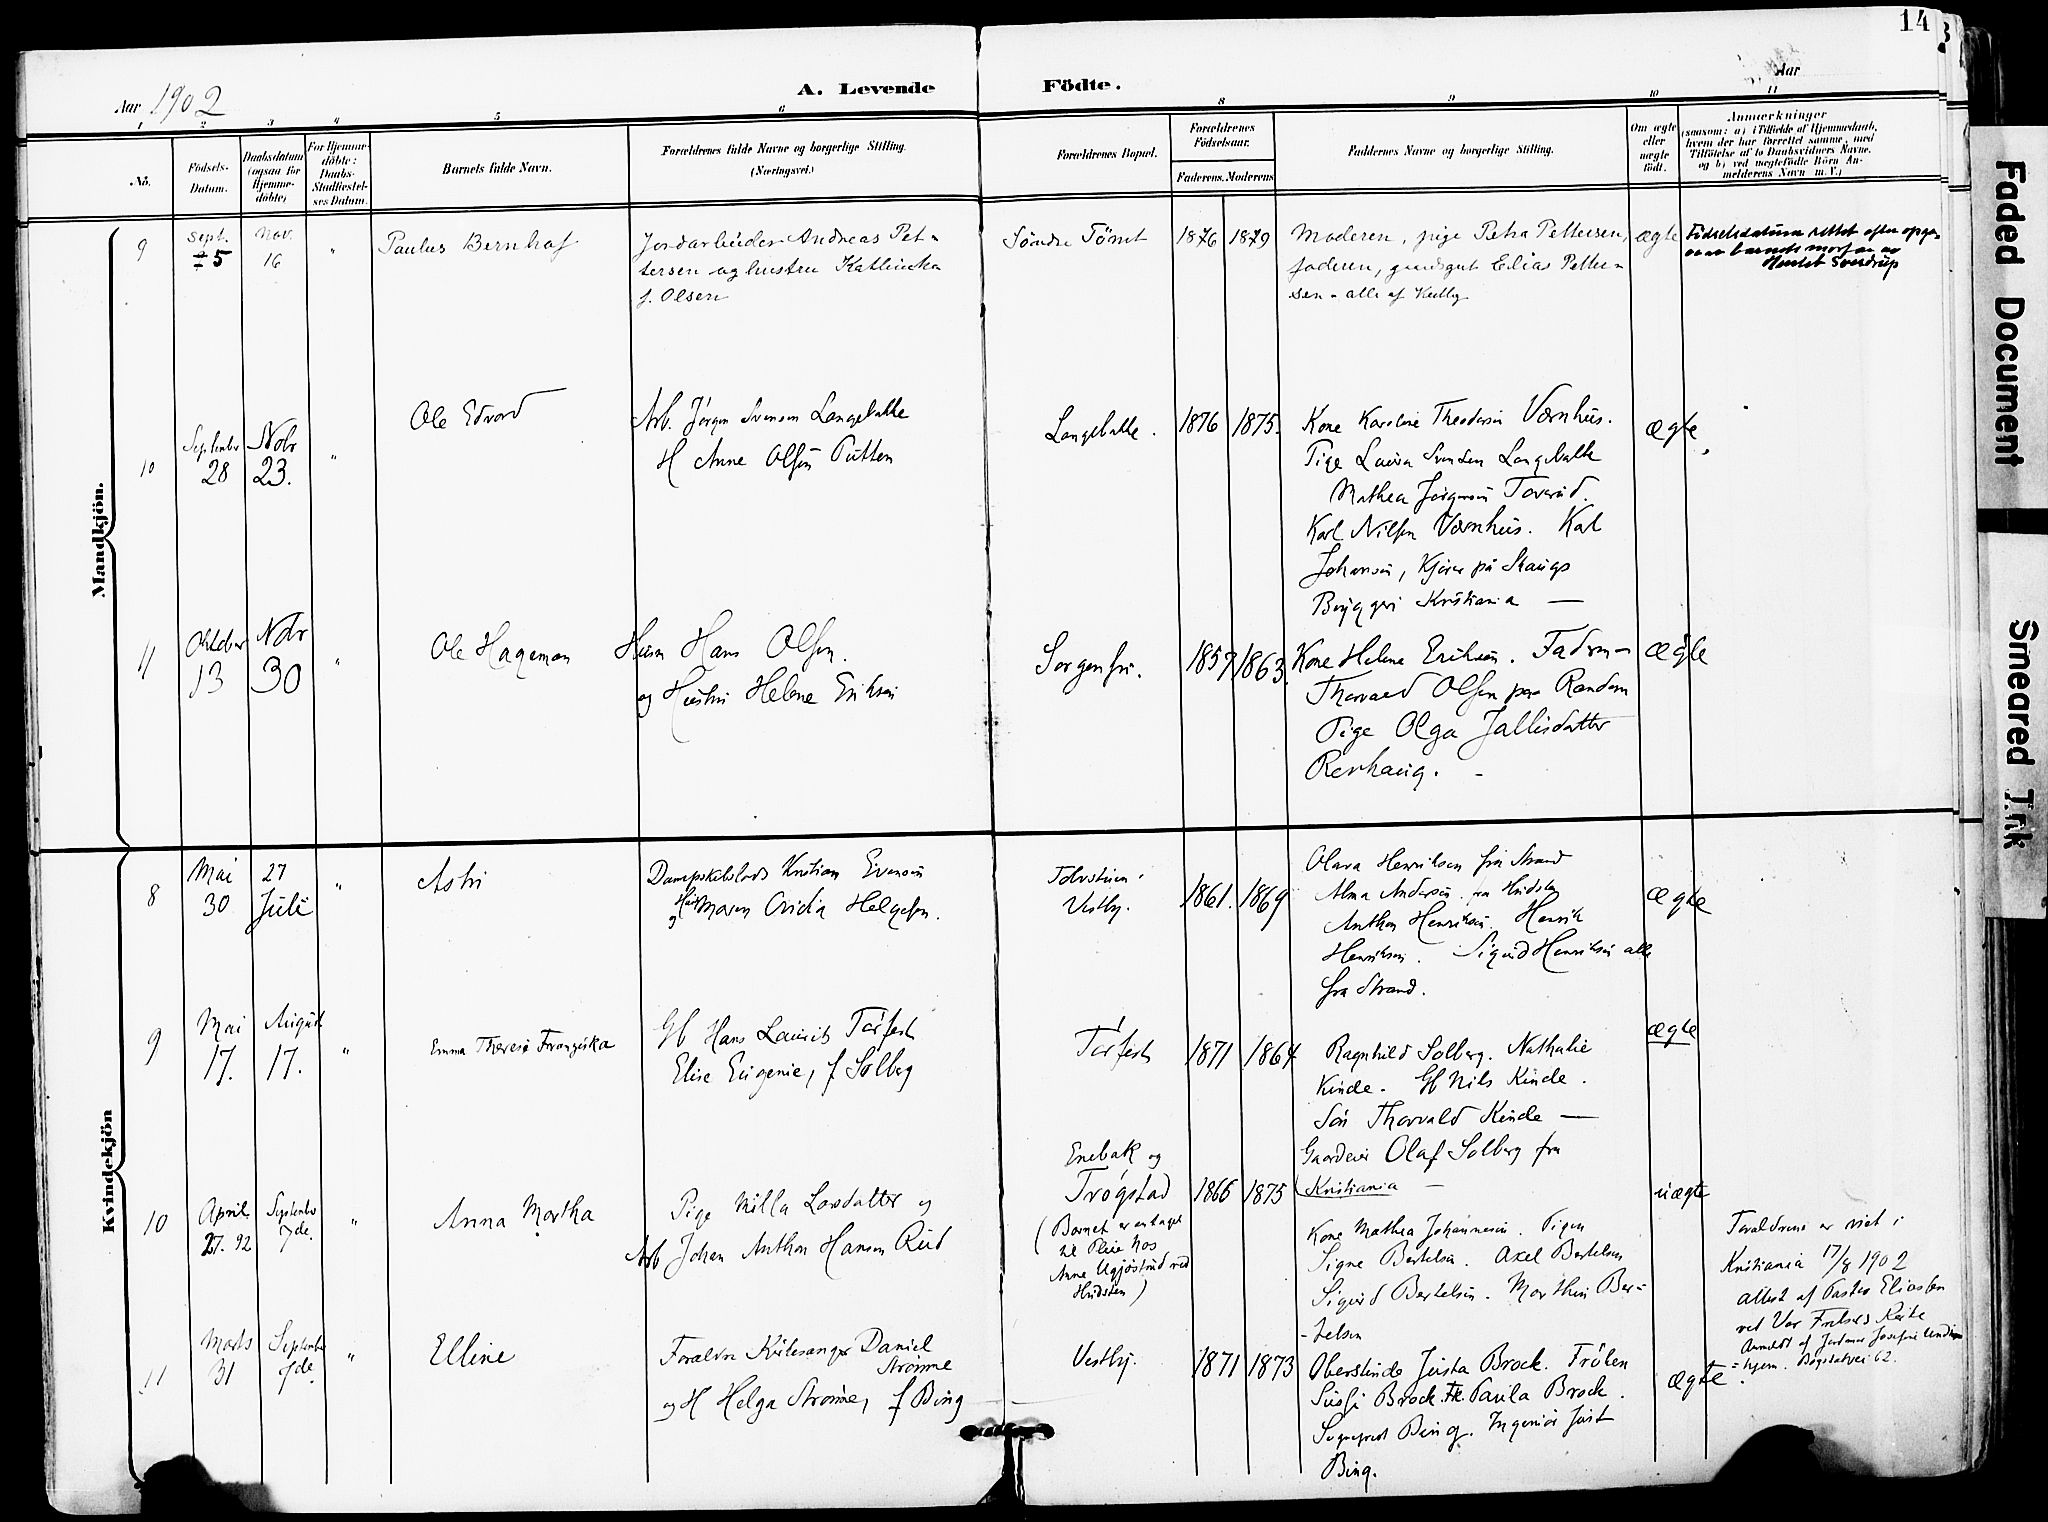 14
Aar 1902
A. Levende Födte.
Aar
1 2 3 4 5 6 8 9 10 11
No.
Födsels-Datum.
Daabsdatum (ogsaa for Hjemme-döbte)
For Hjemme-döbte: Daabs-Stadfæstel-ses Datum.
Barnets fulde Navn.
Forældrenes fulde Navne og borgerlige Stilling. (Næringsvei.)
Forældrenes Bopæl.
Forældrenes Födselsaar.
Faderens. Moderens
Faddernes Navne og borgerlige Stilling.
Om ægte eller uægte födt.
Anmærkninger
(saasom: a) i Tilfælde af Hjemmedaab, hvem der har forrettet samme, med Tilföielse af to Daabsvidners Navne. og b) ved uægtefödte Börn An-melderens Navn m. V.)
Mandkjön.
9 Sept. 5 Nov. 16 " Paulus Bernhof
Jordarbeider Andreas Pet-
tersen og hustru Kathinka
f. Olsen
Søndre Tømt 1876 1879
Moderen, pige Petra Pettersen,
faderen, gaardgut Elias Petter-
sen - alle af Vestby
ægte
Fødselsdatum rettet efter opga-
ve av barnets morfar av
Sverdrup
10 September 28 Nobr 23. " Ole Edvard
Arb. Jørgen Svensen Langebakke
H Anne Olsen Putten
Langebakke. 1876 1875.
Kone Karoline Theodorsen Værnhus.
Pige Laura Svensen Langebakke
Mathea Jørgensen Toverud.
Karl Nilsen Værnhus. Karl
Johansen, Kjører på Skaugs
Bryggeri Kristiania —
ægte,
11 Oktober 13 Nobr 30 " Ole Hageman
Husm Hans Olsen.
og Hustru Helene Eriksen
Sorgenfri. 1857 1863.
Kone Helene Eriksen. Faderen -
Thorvald Olsen paa Randem
Pige Olga Jallisdatter
Revhaug. -
ægte
Kvindekjön
8 Mai 30 27 Juli " Astri
Dampskibslods Kristian Evensen
og Hus Maren Ovidia Helgesen.
Vestby. 1861. 1869
Olava Henriksen fra Strand
Alma Andersen fra Hvidsten
Anthon Henriksen. Henrik
Henriksen. Sigurd Henriksen alle
fra Strand.
ægte
9 Mai 17. August 17. " Emma Therese Franziska
Gb Hans Laurits Tørfest
Elise Eugenie, f Solberg
Tørfest 1871 1864
Ragnhild Solberg. Nathalie
Kinde. Gb Nils Kinde.
Søn Thorvald Kinde —
Gaardeier Olaf Solberg fra
Kristiania -
ægte
10 April 27. 92 September 7de. " Anna Martha
Pige Milla Larsdatter og
Arb Johan Anthon Hansen Rud
Enebak og
Trøgstad
(Barnet er antaget
til Pleie hos
Anne Ugjøstrud ved
Hvidsten)
1866 1875
Kone Mathea Johannesen. Pigen
Signe Bertelsen. Axel Bertelsen
Sigurd Bertelsen. Marthin Ber-
-telsen
uægte
Forældrene er viet i
Kristiania 17/8 1902
attest af Pastor Eliassen
ved Vor Frelsers Kirke
Anmeldt af Jordmor Josefine Lindin
= hjem. Bogstadvei 62.
11 Marts 31 September 7de. " Elline
Forældre Kirkesanger Daniel
Strømme
og H Helga Strømme, f Bing
Vestby. 1871 1873
Oberstinde Justa Brock. Frøken
Sussi Brock. Frk. Paula Brock.
Sogneprest Bing. Ingeniør Just
Bing.
ægte
Faded Document
Smeared Ink